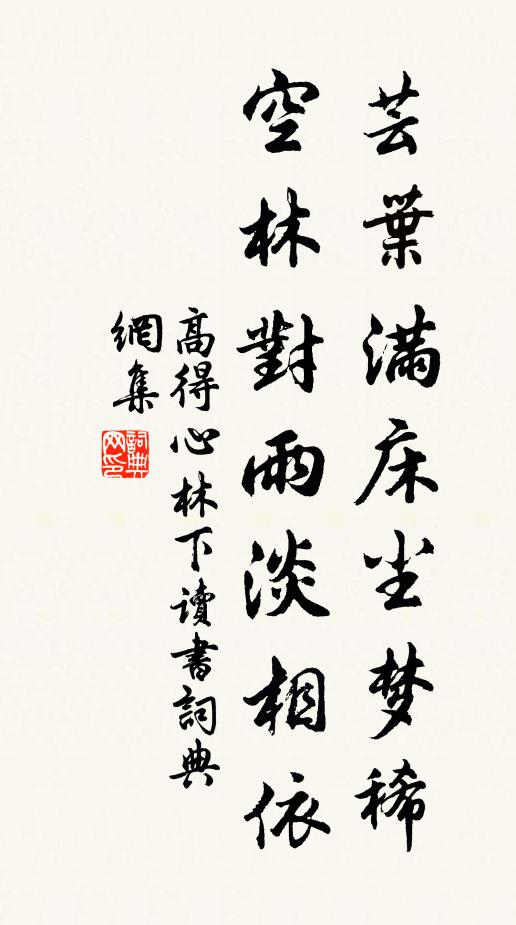 芸葉滿床尘梦稀
空林對雨淡相依
高得心林下讀書詞典
網集
詞典网印